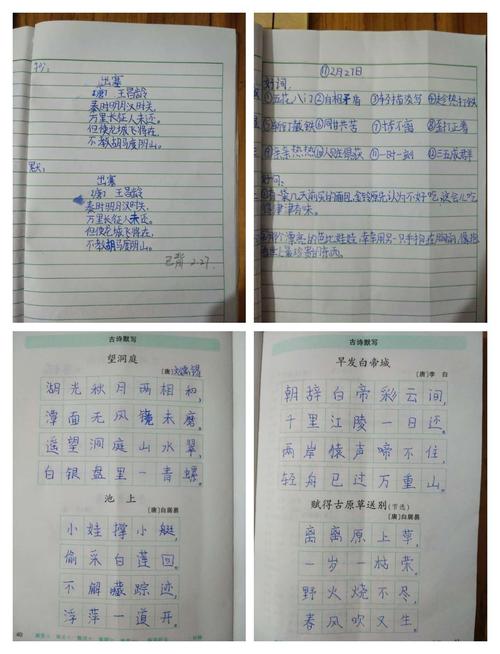 抄:
出塞
[唐] 王昌龄
秦时明月汉时关,
万里长征人未还。
但使龙城飞将在,
不教胡马度阴山。
默:
出塞
[唐] 王昌龄
秦时明月汉时关,
万里长征人未还。
但使龙城飞将在,
不教胡马度阴山。
已背 2.27.
⑪2月27日
好词:
①五花八门 ②自相矛盾 ③轻描淡写 ④趁热打铁
⑥同甘共苦 ⑦寸步不离 ⑧歪打正着
⑪一时一刻 ⑫三五成群
好句:
古诗默写
望洞庭
[唐]刘禹锡
湖光秋月两相和,
潭面无风镜未磨。
遥望洞庭山水翠,
白银盘里一青螺。
池上
[唐]白居易
小娃撑小艇,
偷采白莲回。
不解藏踪迹,
浮萍一道开。
40
古诗默写
早发白帝城
[唐]李 白
朝辞白帝彩云间,
千里江陵一日还。
两岸猿声啼不住,
轻舟已过万重山。
赋得古原草送别(节选)
[唐]白居易
离离原上草,
一岁一枯荣。
野火烧不尽,
春风吹又生。